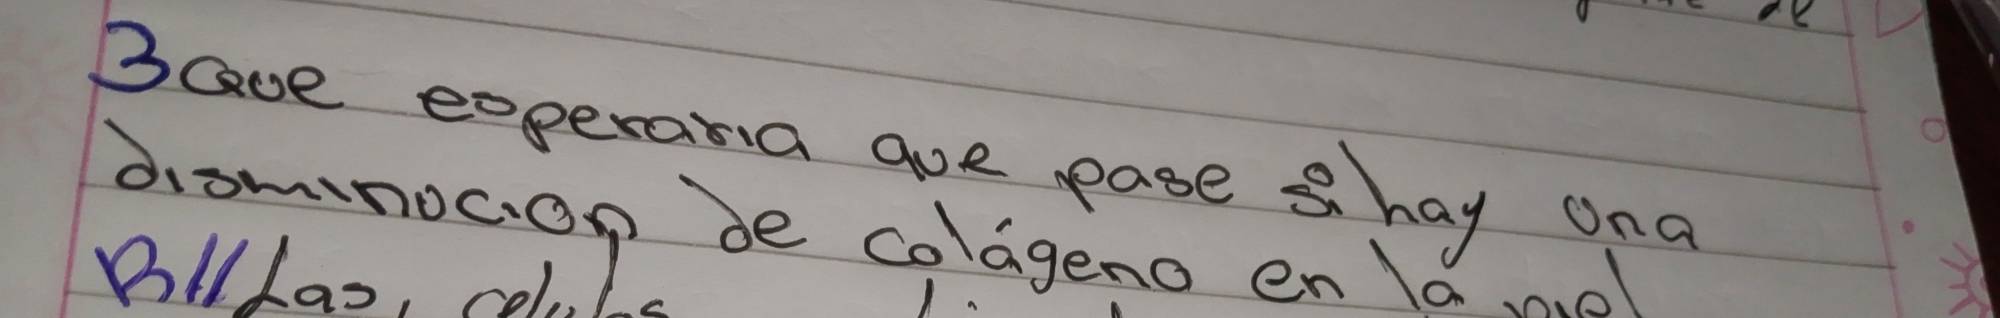 de
3 Que esperaria que pase si hay una
disminucion de colágeno en la piel
R// Las, celulas